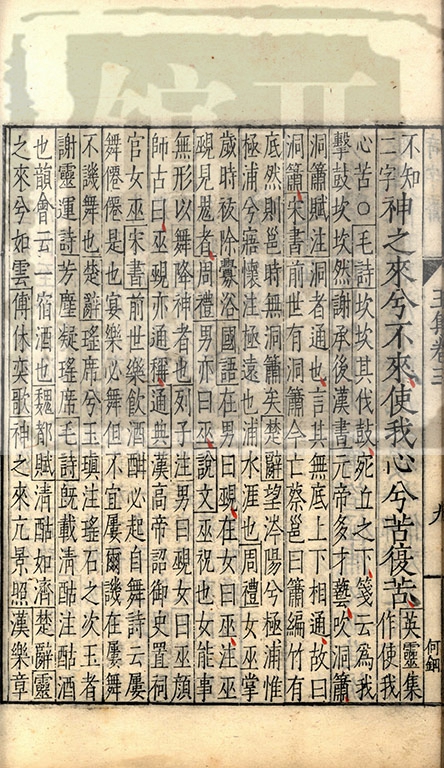 不知神之來兮不來使我心兮苦復苦英靈集
二字 作使我
心苦○毛詩坎坎其伐鼓宛丘之下箋云爲我
擊鼓坎坎然謝承後漢書元帝多才藝吹洞簫
洞簫賦注洞者通也言其無底上下相通故曰
洞簫宋書前世有洞簫今亡蔡邕曰簫編竹有
底然則邕時無洞簫矣楚辭望涔陽兮極浦惟
極浦兮寤懷注極遠也浦水涯也周禮女巫掌
歲時祓除釁浴國語在男曰覡在女曰巫注巫
覡見鬼者周禮男亦曰巫說文巫祝也女能事
無形以舞降神者也列子注男曰覡女曰巫顏
師古曰巫覡亦通稱通典漢高帝詔御史置祠
官女巫宋書前世樂飲酒酣必起自舞詩云屢
舞僊僊是也宴樂必舞但不宜屢爾譏在屢舞
不譏舞也楚辭瑤席兮玉瑱注瑤石之次玉者
謝靈運詩芳塵凝瑤席毛詩旣載清酤注酤酒
也韻會云一宿酒也魏都賦清酤如濟楚辭靈
之來兮如雲傅休奕歌神之來亢景照漢樂章
九
何鈿